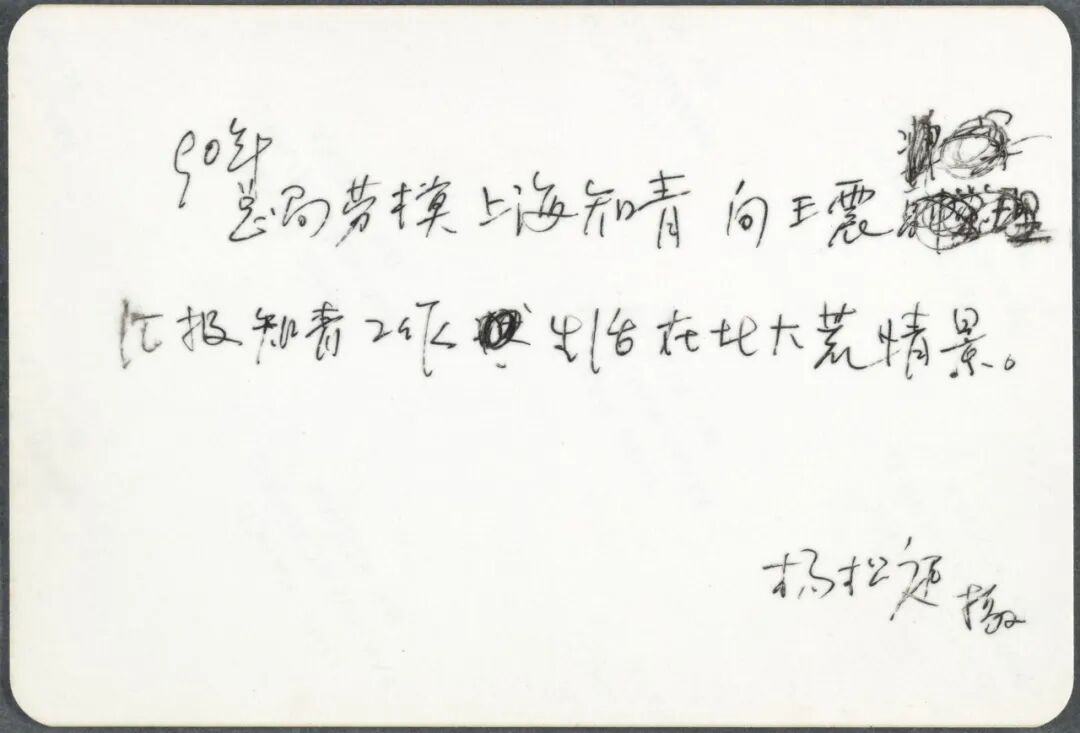 90年
总局劳模上海知青向王震
汇报知青工作生活在北大荒情景。
杨松定 摄